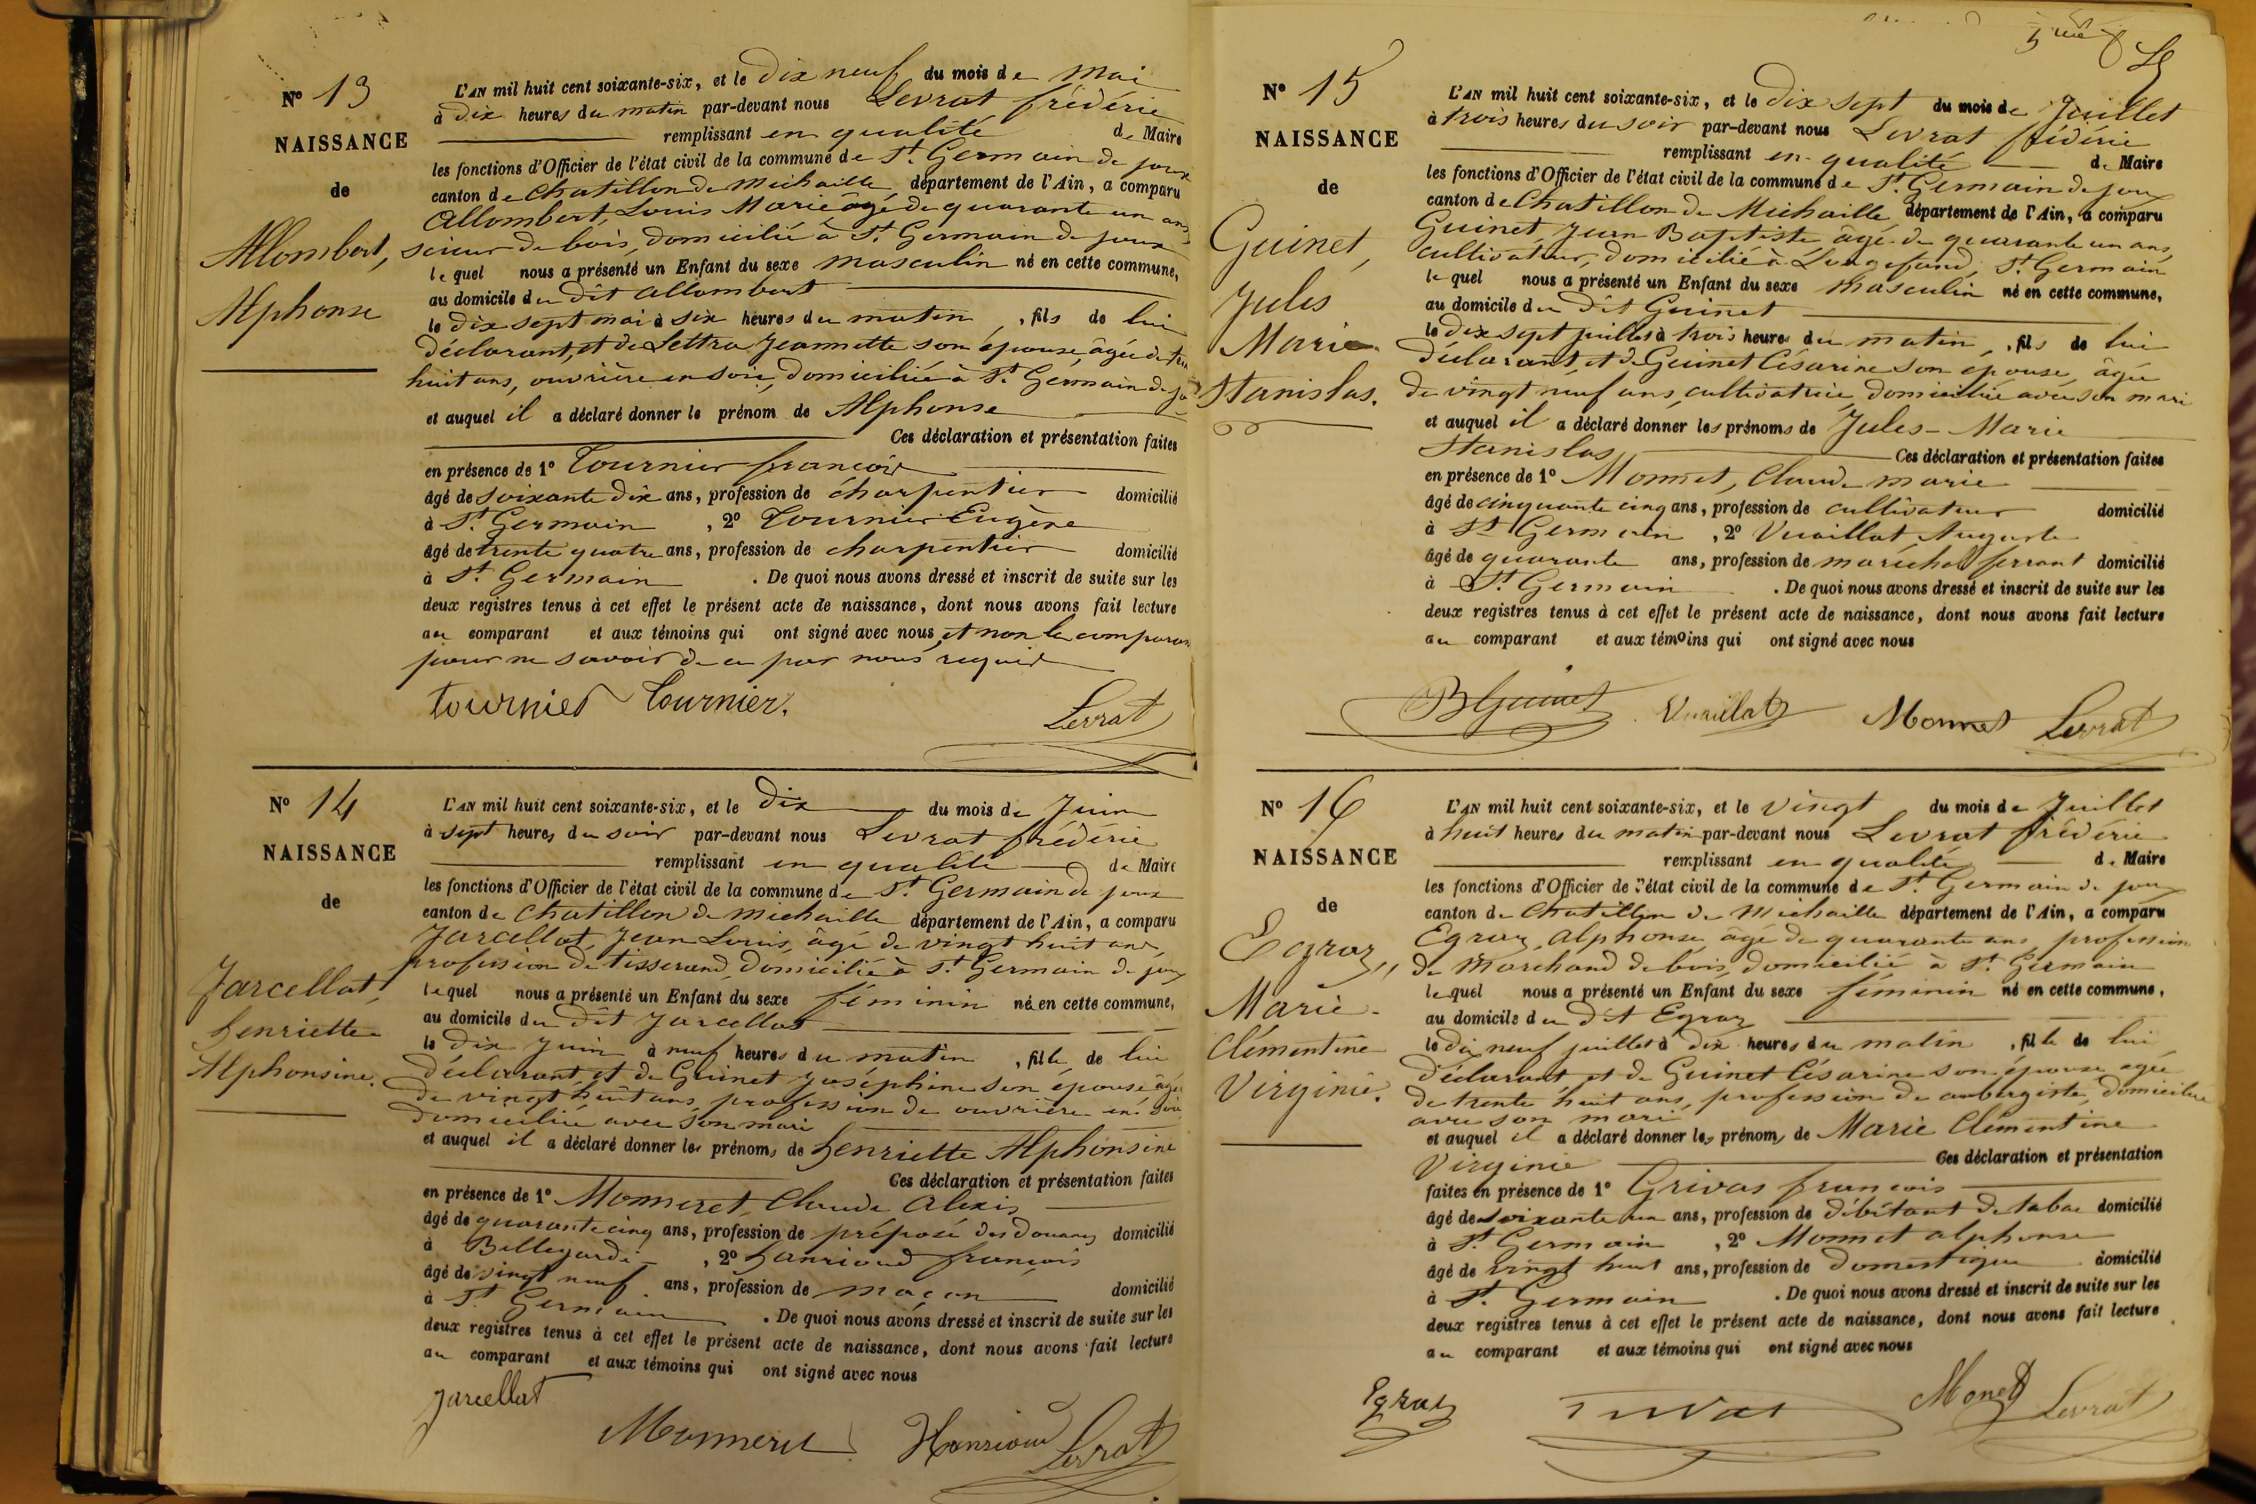 N° 13
NAISSANCE
de
Allombert,
Alphonse
L'AN mil huit cent soixante-six, et le dix neuf du mois de Mai
à dix heures du matin par-devant nous Levrat frédéric
remplissant en qualité de Maire
les fonctions d'Officier de l'état civil de la commune de St. Germain de joux
canton de Chatillon de Michaille, département de l'Ain, a comparu
Allombert, Louis Marie âgé de quarante un ans
scieur de bois, domicilié à St. Germain de joux
lequel nous a présenté un Enfant du sexe masculin né en cette commune,
au domicile du dit Allombert
le dix sept mai à six heures du matin, fils de lui
déclarant, et de Jeannette son épouse, âgée de
huit ans, ouvrière en soie, domiciliée à St. Germain de
et auquel il a déclaré donner le prénom de Alphonse
Ces déclaration et présentation faites
en présence de 1° Tournier françois
âgé de soixante dix ans, profession de charpentier domicilié
à St. Germain, 2° Tournier Eugène
âgé de trente quatre ans, profession de charpentier domicilié
à St. Germain. De quoi nous avons dressé et inscrit de suite sur les
deux registres tenus à cet effet le présent acte de naissance, dont nous avons fait lecture
au comparant et aux témoins qui ont signé avec nous, et non le comparant
pour ne savoir de ce par nous requis
Tournier Tournier. Levrat
N° 14
NAISSANCE
de
Jarcellat,
henriette
Alphonsine.
L'AN mil huit cent soixante-six, et le dix du mois de Juin
à sept heures du soir par-devant nous Levrat frédéric
remplissant en qualité de Maire
les fonctions d'Officier de l'état civil de la commune de St. Germain de joux
canton de Chatillon de Michaille département de l'Ain, a comparu
Jarcellat, Jean Louis, âgé de vingt huit ans,
profession de tisserand, domicilié à St. Germain de joux
lequel nous a présenté un Enfant du sexe féminin né en cette commune,
au domicile du dit Jarcellat
le dix Juin à neuf heures du matin, fille de lui
déclarant, et de Guinet Joséphine son épouse âgée
de vingt huit ans, profession de ouvrière en soie
domiciliée avec son mari
et auquel il a déclaré donner les prénoms de henriette Alphonsine
Ces déclaration et présentation faites
en présence de 1° Monneret, Claude Alexis
âgé de quarante cinq ans, profession de préposé des Douanes domicilié
à Bellegarde, 2° hanrioud françois
âgé de vingt neuf ans, profession de maçon domicilié
à St. Germain. De quoi nous avons dressé et inscrit de suite sur les
deux registres tenus à cet effet le présent acte de naissance, dont nous avons fait lecture
au comparant et aux témoins qui ont signé avec nous
Jarcellat
Monneret Hanrioud Levrat
5
N° 15
NAISSANCE
de
Guinet,
Jules
Marie
Stanislas.
L'AN mil huit cent soixante-six, et le dix sept du mois de Juillet
à trois heures du soir par-devant nous Levrat frédéric
remplissant en qualité de Maire
les fonctions d'Officier de l'état civil de la commune de St. Germain de joux
canton de Chatillon de Michaille, département de l'Ain, a comparu
Guinet Jean Baptiste âgé de quarante un ans,
cultivateur, domicilié à Longefand, St. Germain
lequel nous a présenté un Enfant du sexe masculin né en cette commune,
au domicile du dit Guinet
le dix sept juillet à trois heures du matin, fils de lui
déclarant, et de Guinet Césarine son épouse, âgée
de vingt neuf ans, cultivatrice, domiciliée avec son mari
et auquel il a déclaré donner les prénoms de Jules-Marie
Stanislas Ces déclaration et présentation faites
en présence de 1° Monnet, Claude marie
âgé de cinquante cinq ans, profession de cultivateur domicilié
à St Germain, 2° Vuaillat Auguste
âgé de quarante ans, profession de maréchal ferrant domicilié
à St. Germain. De quoi nous avons dressé et inscrit de suite sur les
deux registres tenus à cet effet le présent acte de naissance, dont nous avons fait lecture
au comparant et aux témoins qui ont signé avec nous
B Guinet Vuaillat Monnet Levrat
N° 16
NAISSANCE
de
Egraz,
Marie
Clémentine
Virginie.
L'AN mil huit cent soixante-six, et le vingt du mois de Juillet
à huit heures du matin par-devant nous Levrat frédéric
remplissant en qualité de Maire
les fonctions d'Officier de l'état civil de la commune de St. Germain de joux
canton de Chatillon de Michaille département de l'Ain, a comparu
Egraz, Alphonse, âgé de quarante ans, profession
de Marchand de bois, domicilié à St. Germain
lequel nous a présenté un Enfant du sexe féminin né en cette commune,
au domicile du dit Egraz
le dix neuf juillet à dix heures du matin, fille de lui
déclarant et de Guinet Césarine son épouse âgée
de trente huit ans, profession de aubergiste, domiciliée
avec son mari
et auquel il a déclaré donner les prénoms de Marie Clémentine
Virginie Ces déclaration et présentation
faites en présence de 1° Grivas françois
âgé de soixante un ans, profession de débitant de tabac domicilié
à St. Germain, 2° Monnet alphonse
âgé de vingt huit ans, profession de domestique domicilié
à St. Germain. De quoi nous avons dressé et inscrit de suite sur les
deux registres tenus à cet effet le présent acte de naissance, dont nous avons fait lecture
au comparant et aux témoins qui ont signé avec nous
Egraz Monet Levrat